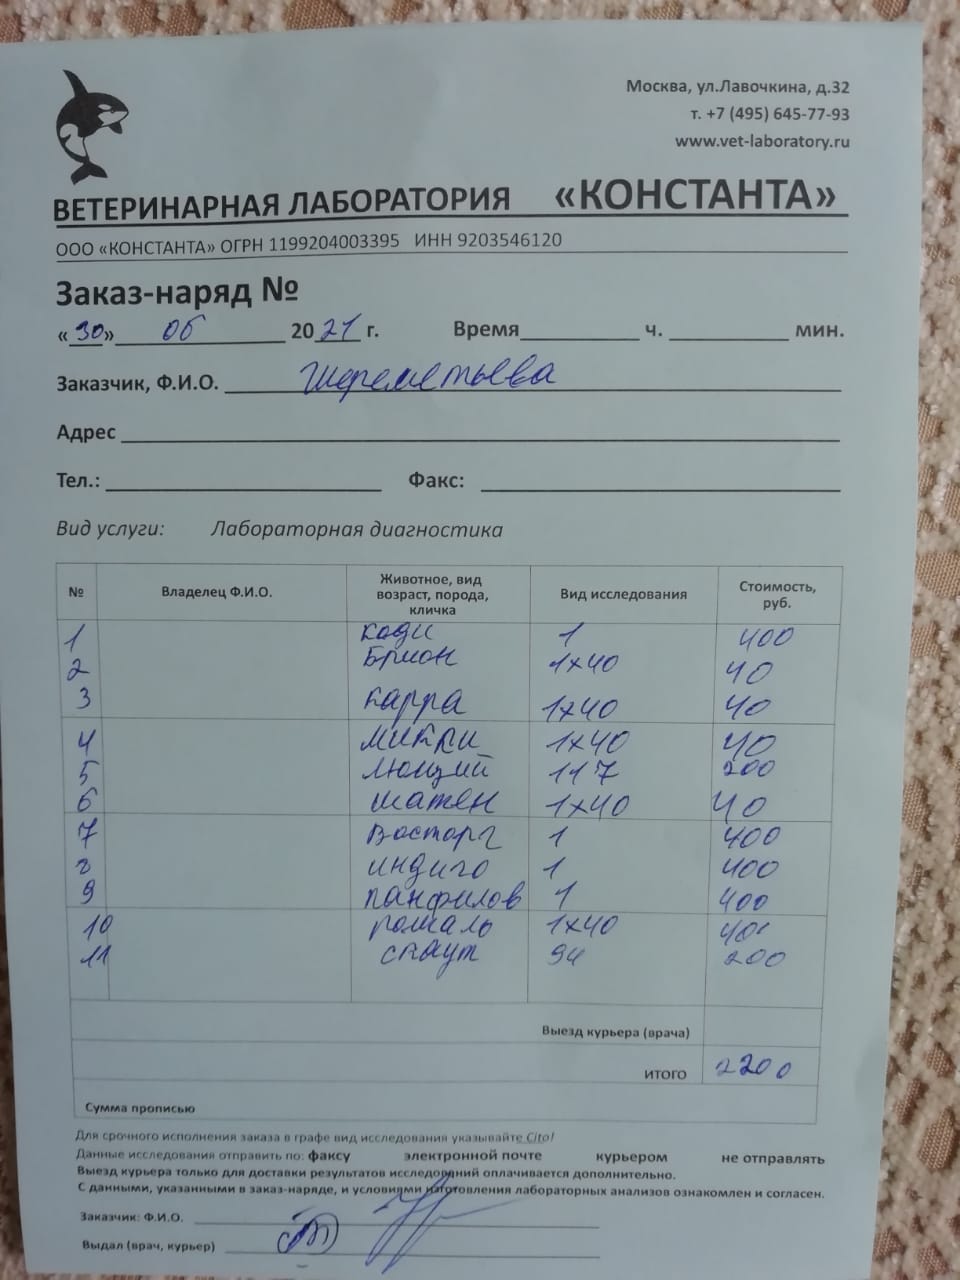 Москва, ул.Лавочкина, д.32
т. +7 (495) 645-77-93
www.vet-laboratory.ru
ВЕТЕРИНАРНАЯ ЛАБОРАТОРИЯ «КОНСТАНТА»
ООО «КОНСТАНТА» ОГРН 1199204003395 ИНН 9203546120
Заказ-наряд №
«30» 06 2021 г. Время ч. мин.
Заказчик, Ф.И.О. Шереметьева
Адрес
Тел.: Факс:
Вид услуги: Лабораторная диагностика
№ Владелец Ф.И.О. Животное, вид возраст, порода, кличка Вид исследования Стоимость, руб.
1 Коди 1 400
2 Брион 1х40 40
3 Карра 1х40 40
4 Микки 1х40 40
5 Люций 117 200
6 Шатен 1х40 40
7 Восторг 1 400
8 Индиго 1 400
9 Панфилов 1 400
10 Рошаль 1х40 40
11 Скаут 94 200
Выезд курьера (врача)
ИТОГО 2200
Сумма прописью
Для срочного исполнения заказа в графе вид исследования указывайте Cito!
Данные исследования отправить по: факсу электронной почте курьером не отправлять
Выезд курьера только для доставки результатов исследований оплачивается дополнительно.
С данными, указанными в заказ-наряде, и условиями изготовления лабораторных анализов ознакомлен и согласен.
Заказчик: Ф.И.О.
Выдал (врач, курьер)